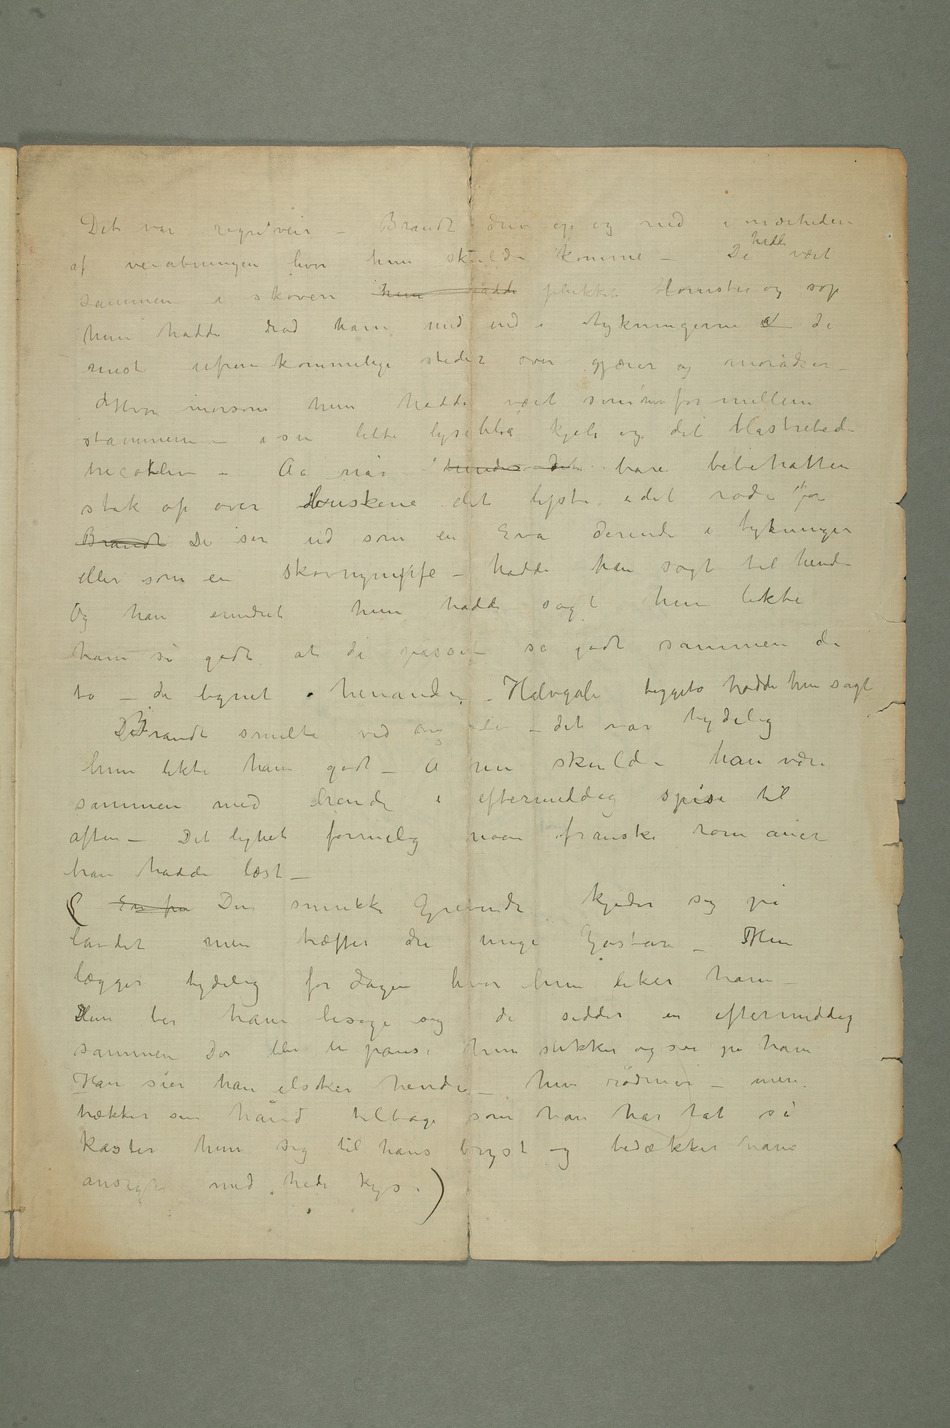 Det var regnveir – Brandt drev op og ned i nærheden
af veiåbningen hvor hun skulde komme – De hadde vært
sammen i skoven hun hadde plukket blomster og sop
hun hadde drad ham med ind i tykningerne de
mest ufremkommelige steder over gjærer og moradser –
Hvor morsom hun hadde vært som hun for mellem
stammerne – i sin lette lyseblå kjole og det
– Aa når bare bebehatten
stak op over buskene det lyste i det røde
Brandt De ser ud som en Eva derinde i tykningen
eller som en skovnymffe – hadde han sagt til hende
Og han erindret hun hadde sagt hun likte
ham så godt at de passet så godt sammen de
to – de lignet hinanden – Halvgale begge to hadde hun sagt
Brandt smilte ved – det var tydelig
hun likte ham godt – Å nu skulde han være
sammen med hende i eftermiddag spise til
aften – Det lignet formelig noen franske romaner
han hadde læst –
( En fra Den smukke Grevinde kjeder sig på
landet men træffer den unge Gaston – Hun
lægger tydelig for dagen hvor hun liker ham –
Hun ber ham besøge sig de sidder en eftermiddag
sammen Der blir en pause hun sukker og ser på ham
Han sier han elsker hende – hun rødmer – men
trækker sin hånd tilbage som han har tat så
kaster hun sig til hans bryst og bedækker hans
ansigt med hede kys.)